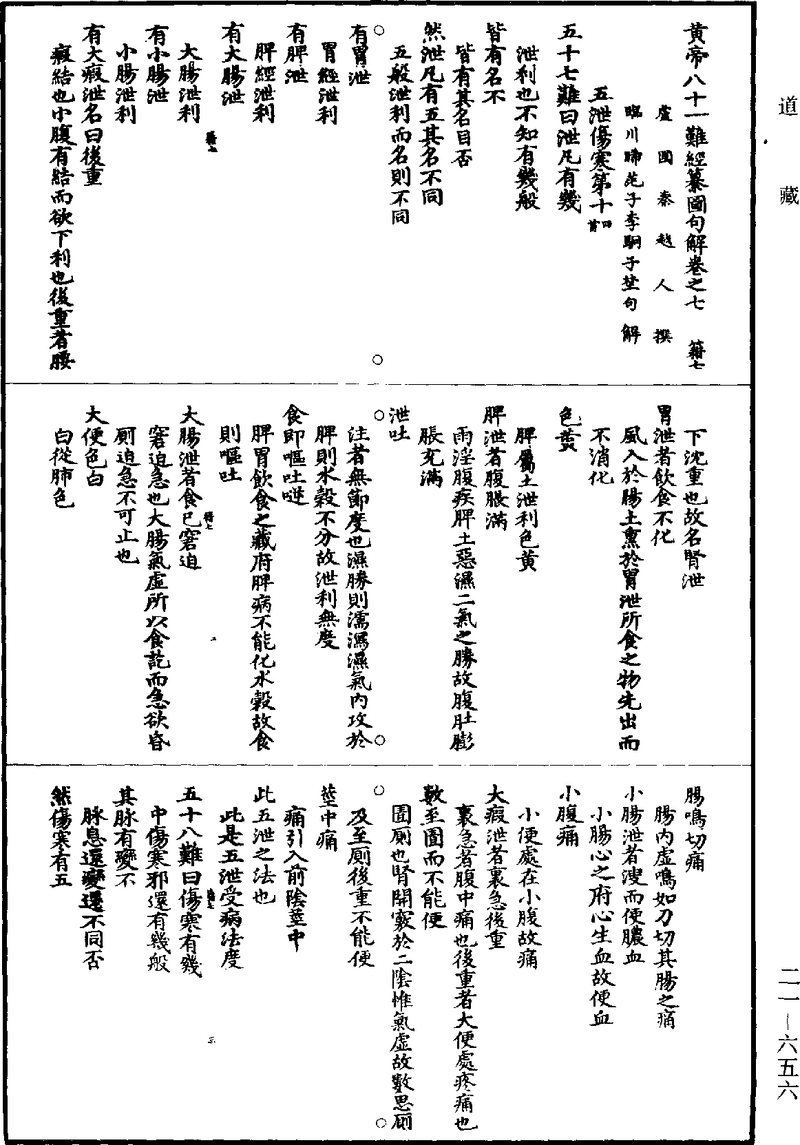 道藏
黃帝八十一難經纂圖句解卷之七 籍七
盧國秦越人撰
臨川晞范子李駉子埜句解
五泄傷寒第十四首
五十七難曰泄凡有幾
泄利也不知有幾般
皆有名不
皆有其名目否
然泄凡有五其名不同
五般泄利而名則不同
有胃泄
胃經泄利
有脾泄
脾經泄利
有大腸泄
大腸泄利
有小腸泄
小腸泄利
有大瘕泄名曰後重
瘕結也小腹有結而欲下利也後重者腰
下沈重也故名腎泄
胃泄者飲食不化
風入於腸土熏於胃泄所食之物先出而
不消化
色黃
脾屬土泄利色黃
脾泄者腹脹滿
雨淫腹疾脾土惡濕二氣之勝故腹肚膨
脹充滿
泄吐
注者無節度也濕勝則濡瀉濕氣內攻於
脾則水穀不分故泄利無度
食即嘔吐逆
脾胃飲食之藏府脾病不能化水穀故食
則嘔吐
大腸泄者食已窘迫
窘迫急也大腸氣虛所以食訖而急欲昏
厠迫急不可止也
大便色白
白從肺色
腸鳴切痛
腸內虛鳴如刀切其腸之痛
小腸泄者溲而便膿血
小腸心之府心生血故便血
小腹痛
小便處在小腹故痛
大瘕泄者裏急後重
裏急者腹中痛也後重者大便處疼痛也
數至圊而不能便
圊厠也腎開竅於二陰惟氣虛故數思厠
及至厠後重不能便
莖中痛
痛引入前陰莖中
此五泄之法也
此是五泄受病法度
五十八難曰傷寒有幾
中傷寒邪還有幾般
其脉有變不
脉息還變還不同否
然傷寒有五
二一—六五六